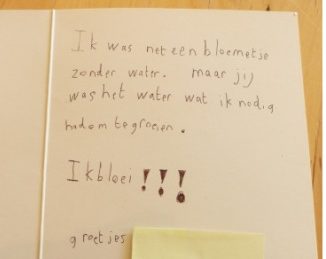 Ik was net een bloemetje
zonder water. maar jij
was het water wat ik nodig
had om te groeien.
Ik bloei !!!
groetjes